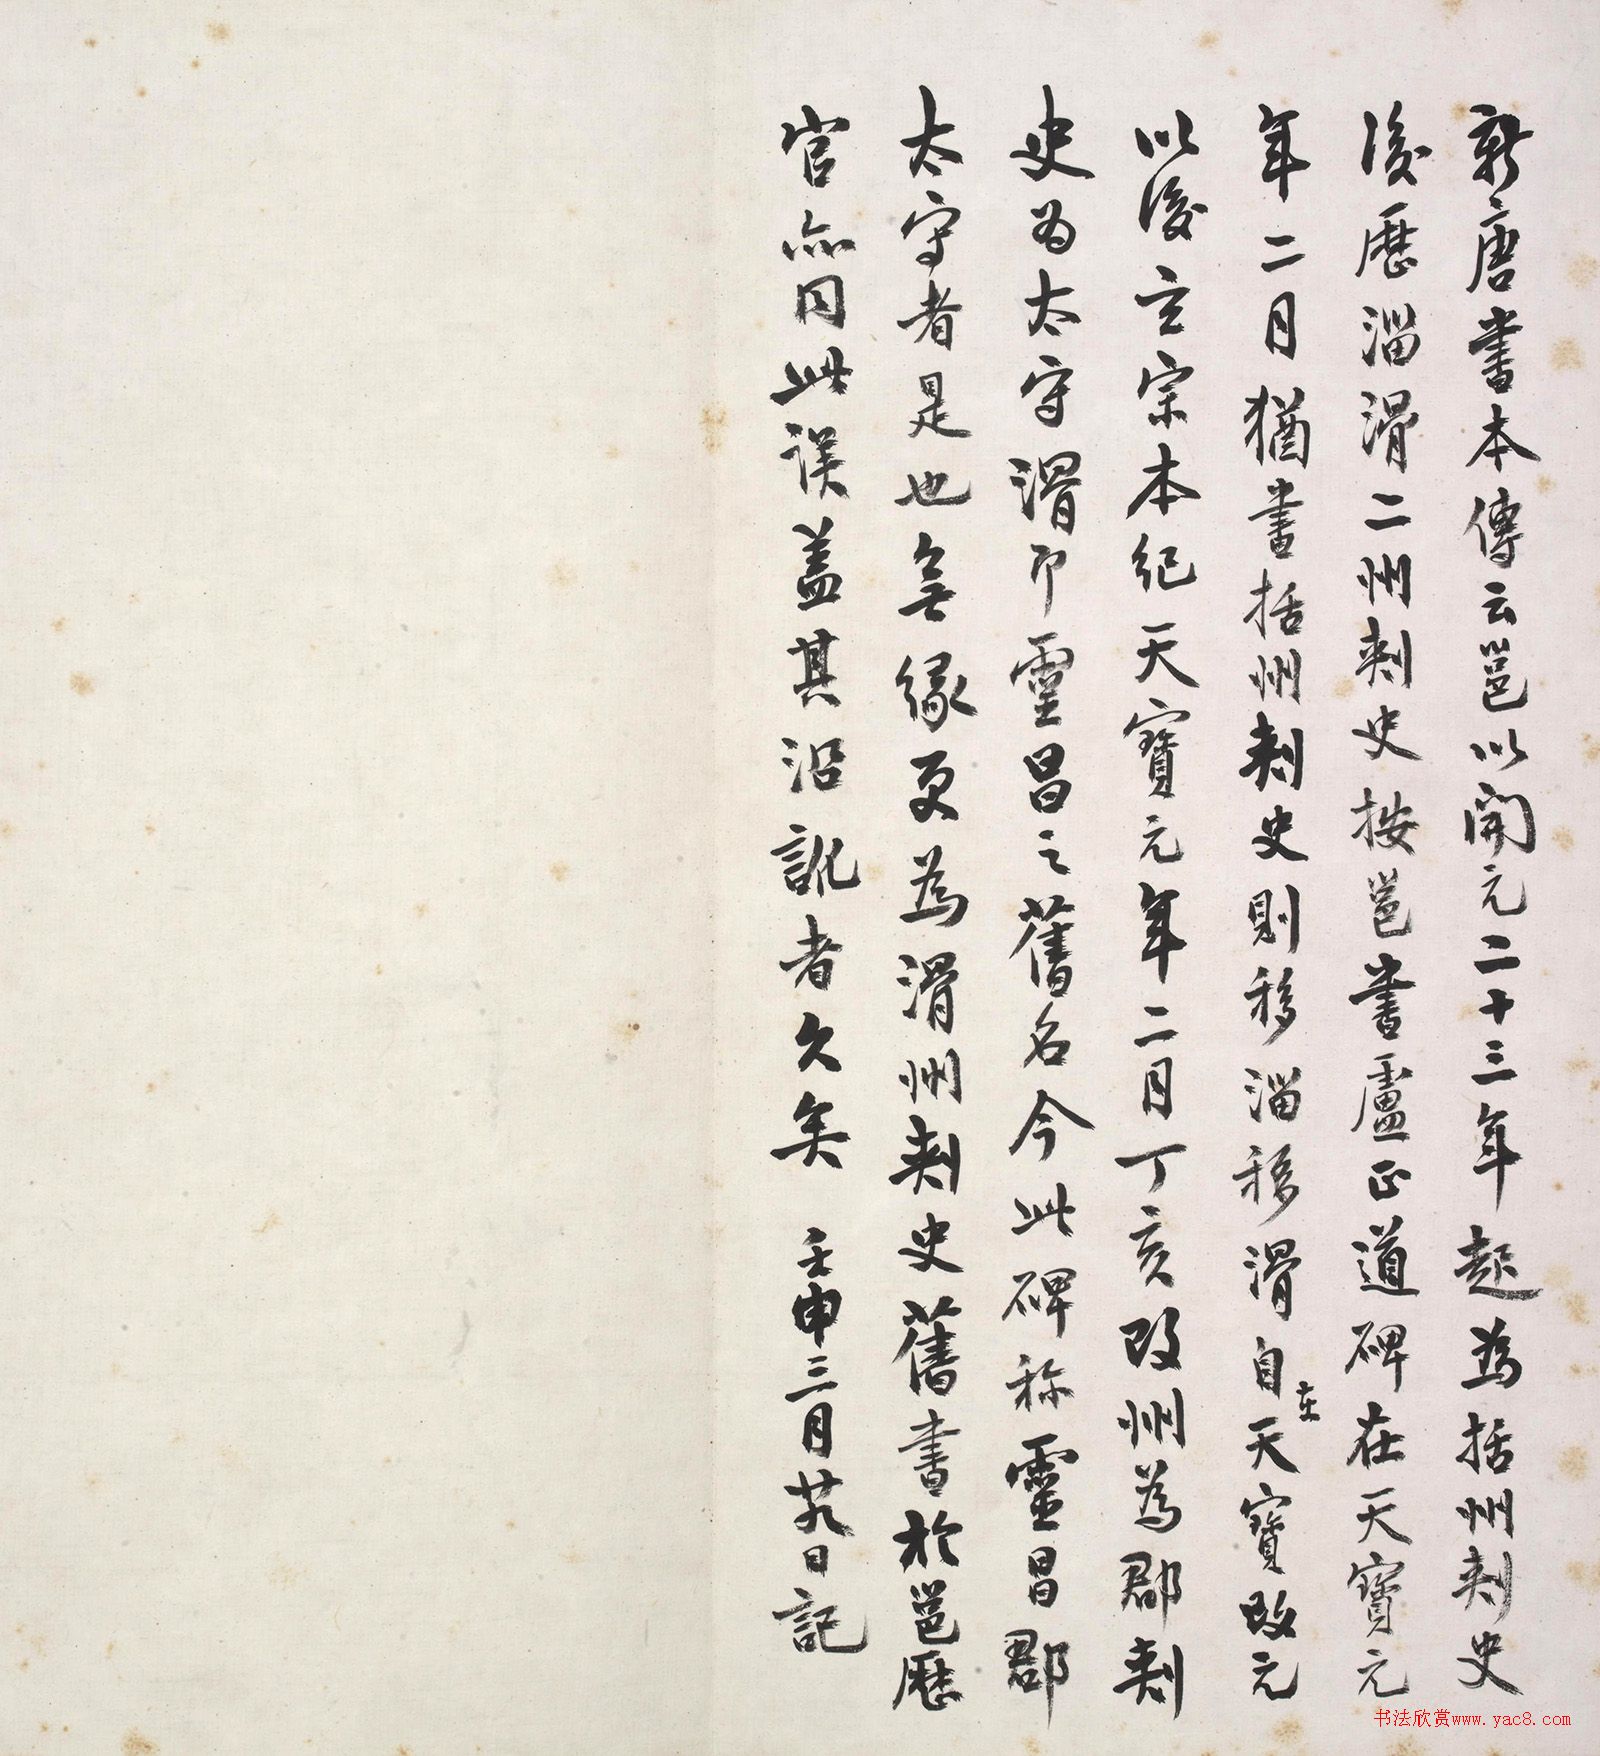 新唐書本傳云邕以開元二十三年起為括州刺史
後歷淄滑二州刺史按邕書盧正道碑在天寶元
年二月猶書括州刺史則移淄移滑自在天寶改元
以後玄宗本紀天寶元年二月丁亥改州為郡刺
史為太守滑即靈昌之舊名今此碑称靈昌郡
太守者是也無緣更為滑州刺史舊書於邕歷
官亦同此誤盖其沿訛者久矣 壬申三月廿九日記
书法欣赏www.yac8.com